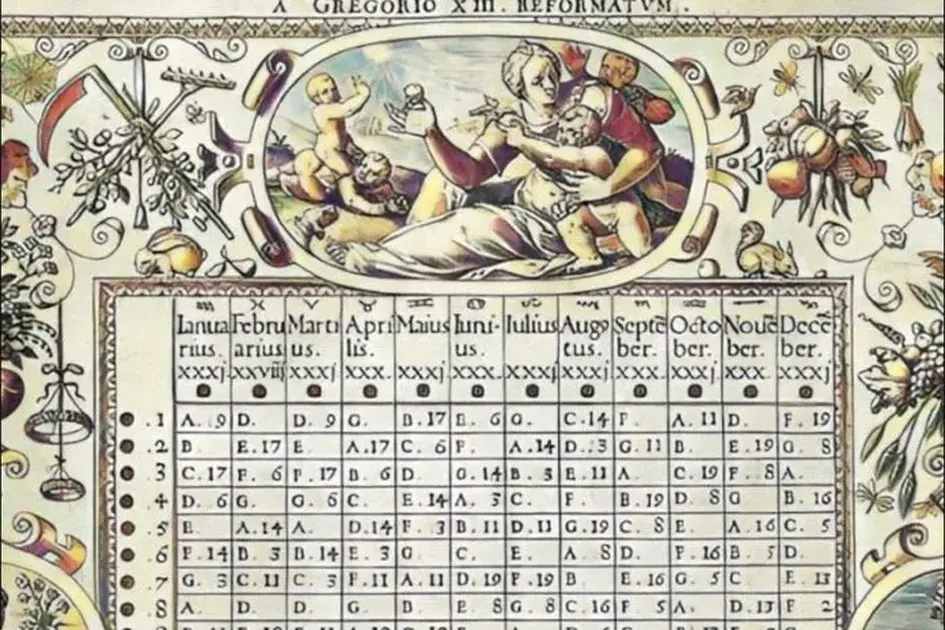 A GREGORIO XIII. REFORMATVM.
Ianua Febru Marti Apri Maius Iuni- Iulius Augo Septē Octo Nouē Decē
rius. arius us. lis. us. tus. ber. ber. ber. ber.
xxxj. xxviij xxxj xxx. xxxj xxx. xxxj xxxj xxx. xxxj xxx. xxxj
.1 A. 9 D. D. 9 G. B. 17 E. 6 G. C. 14 F. A. 11 D. F. 19
.2 B. E. 17 E. A. 17 C. 6 F. A. 14 D. 3 G. 11 B. E. 19 G. 8
.3 C. 17 F. 6 F. 17 B. 6 D. G. 14 B. 3 E. 11 A. C. 19 F. 8 A.
.4 D. 6 G. G. 6 C. E. 14 A. 3 C. F. B. 19 D. 8 G B. 16
.5 E. A. 14 A. D. 14 F. 3 B. 11 D. 11 G. 19 C. 8 E. A. 16 C. 5
.6 F. 14 B. 3 B. 14 E. 3 G. C. E. A. 8 D. F. 16 B. 5 D.
.7 G. 3 C. 11 C. 3 F. 11 A. 11 D. 19 F. 19 B. E. 16 G. 5 C. E. 13
.8 A. D. D. G. B. E. 8 G. 8 C. 16 F. 5 A. D. 13 F 2